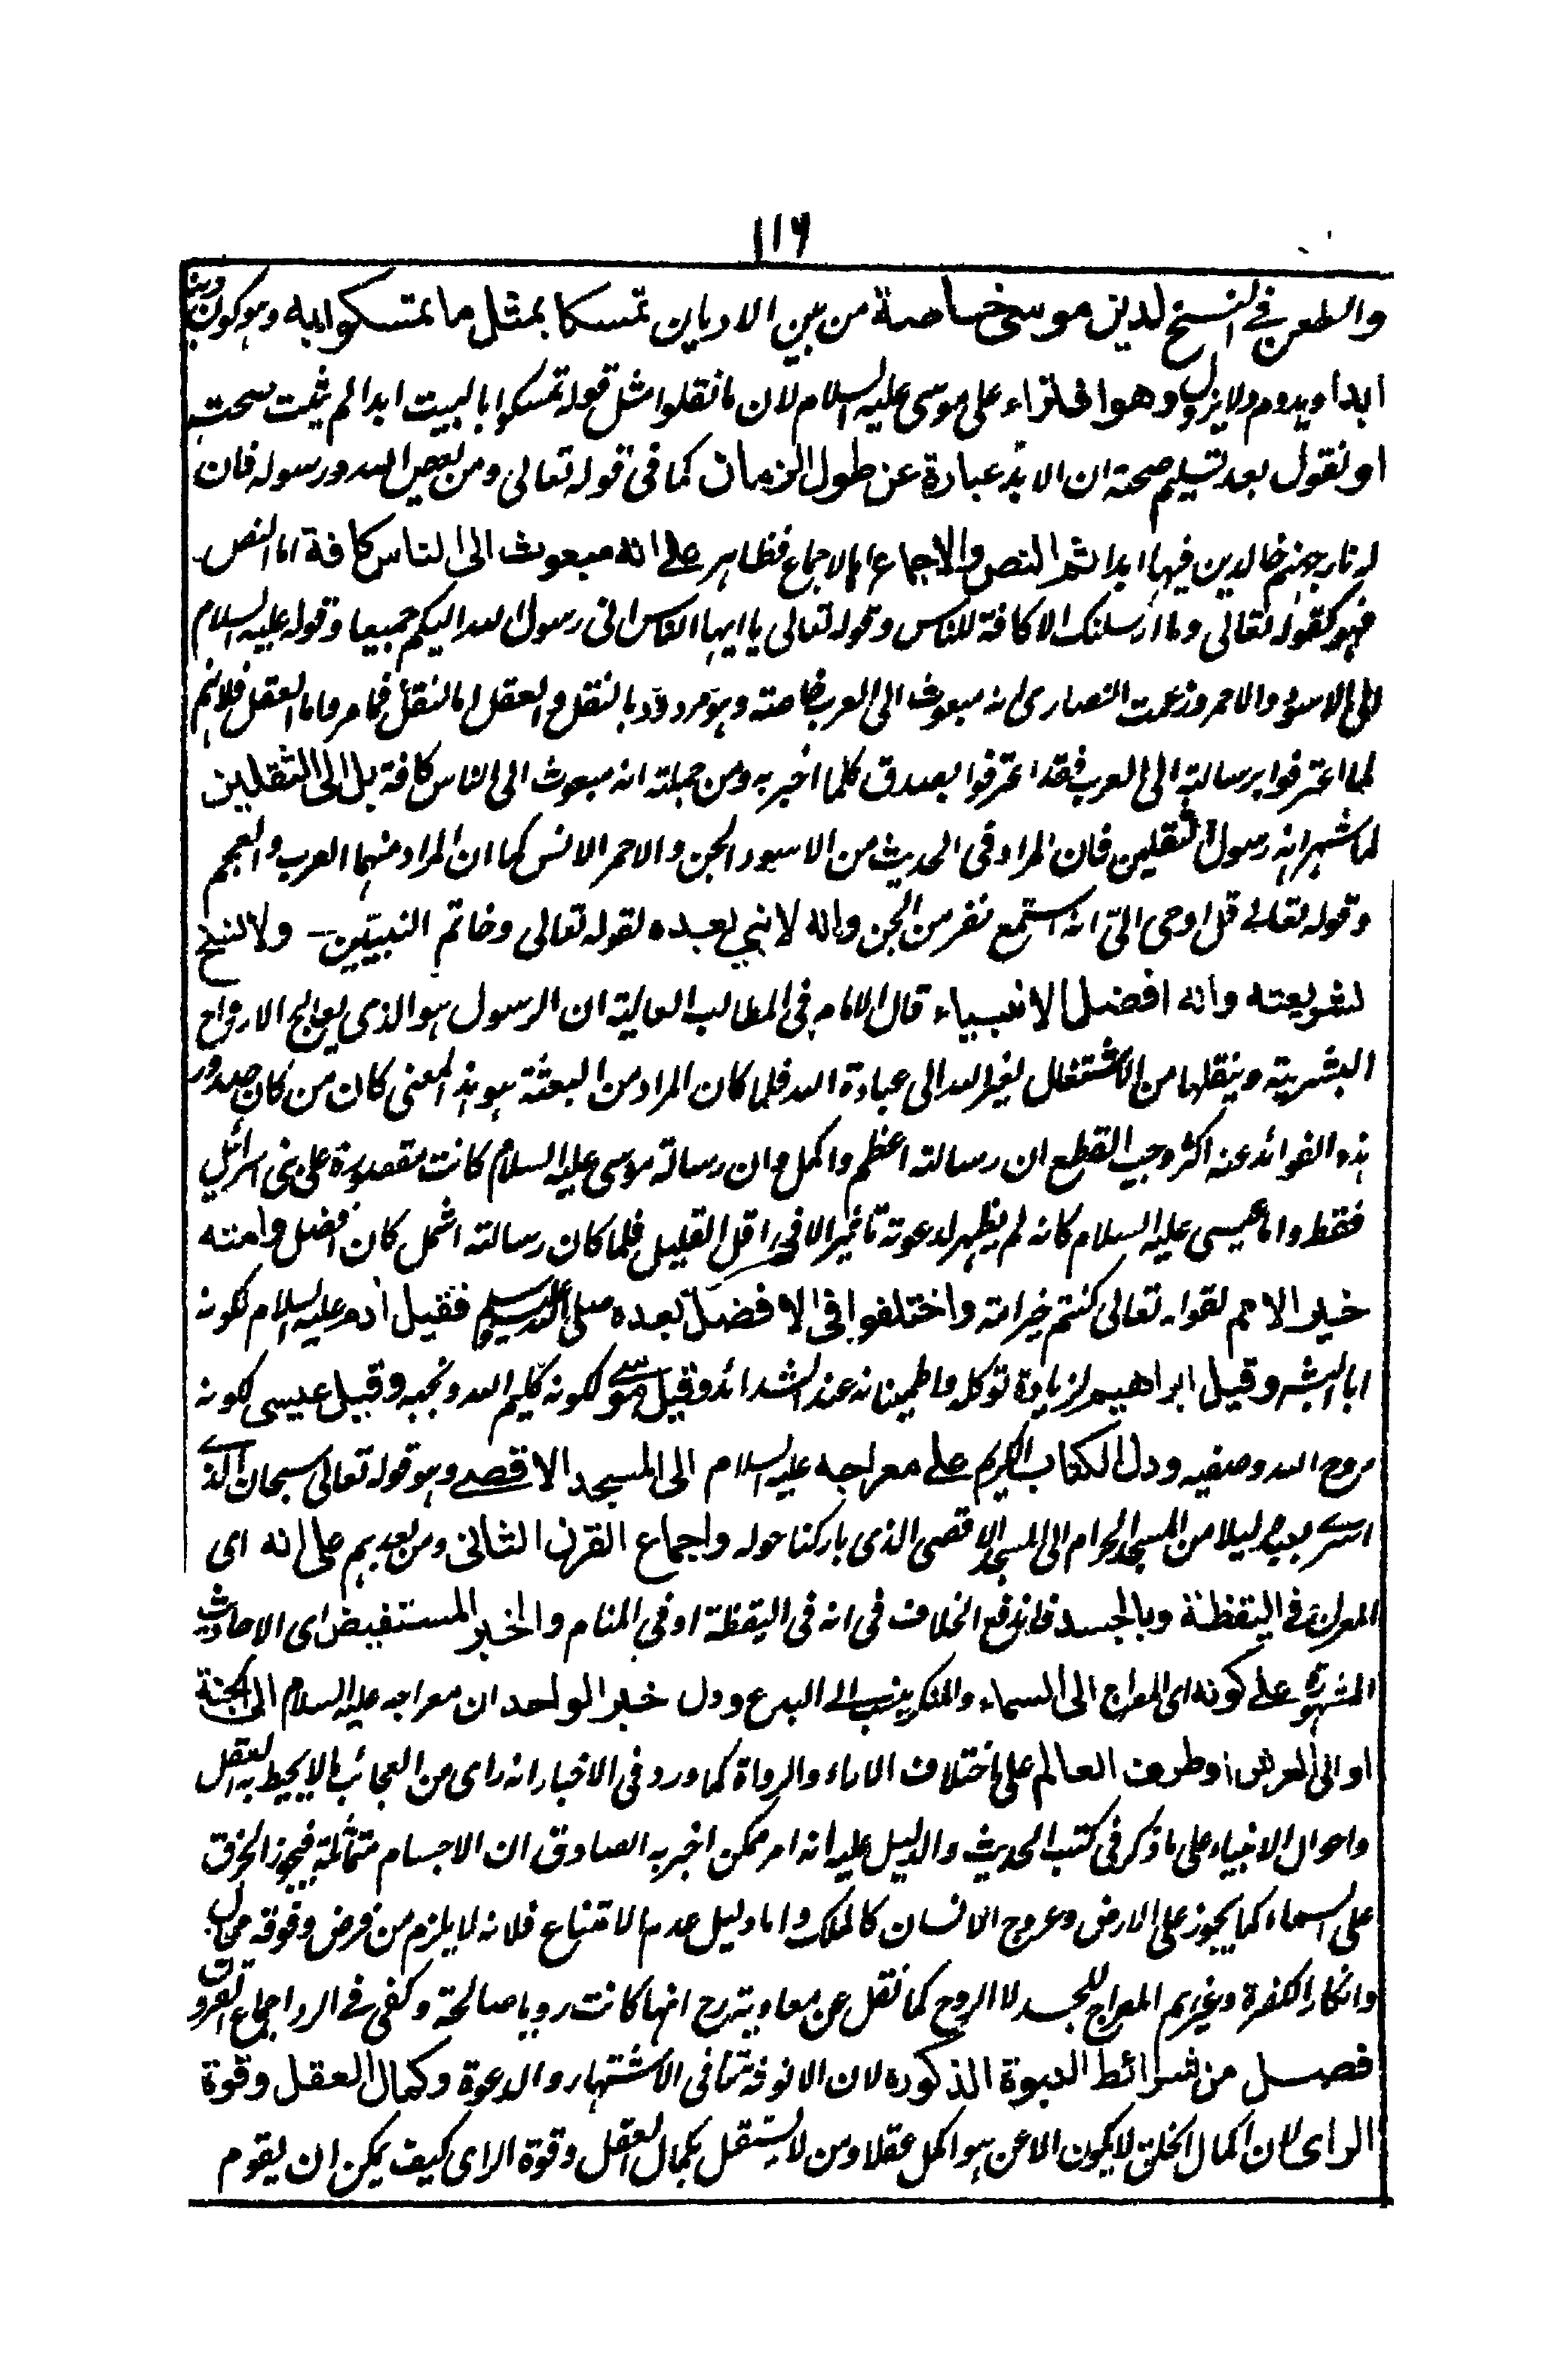 ١١٦
والطعن في النسخ لدين موسى خاصة من بين الاديان تمسكا بمثل ما تمسكوا به وهو كون دينه
ابدا ويدوم ولا يزول وهو افتراء على موسى عليه السلام لان ما نقلوا مثل قوله تمسكوا بالسبت ابدا لم يثبت صحته
او نقول بعد تسليم صحته ان الابد عبارة عن طول الزمان كما في قوله تعالى ومن يعص الله ورسوله فان
له نار جهنم خالدين فيها ابدا ثم النص والاجماع اما الاجماع فظاهر على انه مبعوث الى الناس كافة اما النص
فهو كقوله تعالى وما ارسلنك الا كافة للناس وقوله تعالى يا ايها الناس انى رسول الله اليكم جميعا وقوله عليه السلام
الى الاسود والاحمر وزعمت النصارى انه مبعوث الى العرب خاصته وهو مردود بالنقل والعقل اما النقل فما مر واما العقل فلانهم
لما اعترفوا برسالته الى العرب فقد اعترفوا بصدق كلما اخبر به ومن جملته انه مبعوث الى الناس كافة بل الى الثقلين
لما شهر انه رسول الثقلين فان المراد في الحديث من الاسود الجن والاحمر الانس كما ان المراد منهما العرب والعجم
وقوله تعالى قل اوحى الىّ انه استمع نفر من الجن وانه لا نبي بعده لقوله تعالى وخاتم النبيّين – ولا نسخ
لشريعته وانه افضل الانبياء قال الامام في المطالب العالية ان الرسول هو الذى يعالج الارواح
البشرية وينقلها من الاشتغال بغير الله الى عبادة الله فلما كان المراد من البعثة هو هذا المعنى كان من كان صدور
هذه الفوائد عنه اكثر وجب القطع ان رسالته اعظم واكمل وان رسالة موسى عليه السلام كانت مقصورة على بنى اسرائيل
فقط واما عيسى عليه السلام كانه لم يظهر لدعوته تاثيرا الا في اقل القليل فلما كان رسالته اشمل كان افضل وامته
خير الامم لقوله تعالى كنتم خير امة واختلفوا في الافضل بعده صلى الله عليه وسلم فقيل آدم عليه السلام لكونه
ابا البشر وقيل ابراهيم لزيادة توكله واطمينانه عند الشدائد وقيل موسى لكونه كليم الله ونجيه وقيل عيسى لكونه
روح الله وصفيه ودل الكتاب الكريم على معراجه عليه السلام الى المسجد الاقصى وهو قوله تعالى سبحان الذى
اسرى بعبده ليلا من المسجد الحرام الى المسجد الاقصى الذى باركنا حوله واجماع القرن الثانى ومن بعدهم على انه اى
المعراج في اليقظة وبالجسد فاندفع الخلاف في انه في اليقظة او في المنام والخبر المستفيض اى الاحاديث
المشهورة على كونه اى المعراج الى السماء والمنكر ينسب الى البدع ودل خبر الواحد ان معراجه عليه السلام الى الجنة
او الى العرش او طرف العالم على اختلاف الاراء والرواة كما ورد في الاخبار انه راى من العجائب ما لا يحيط به العقل
واحوال الانبياء على ما ذكر في كتب الحديث والدليل عليه انه امر ممكن اخبر به الصادق ان الاجسام متماثلة فيجوز الخرق
على السماء كما يجوز على الارض وعروج الانسان كالملك واما دليل عدم الامتناع فلانه لا يلزم من فرض وقوعه محال
وانكار الكفرة وغيرهم المعراج للجسد لا الروح كما نقل عن معاوية رح انها كانت رويا صالحة وكفى في الرد اجماع القرون
فصل من شرائط النبوة الذكورة لان الانوثة تنافى الاشتهار والدعوة وكمال العقل وقوة
الراى لان اكمال الخلق لا يكون الا عن هو اكمل عقلا ومن لا يستقل بكمال العقل وقوة الراى كيف يمكن ان يقوم